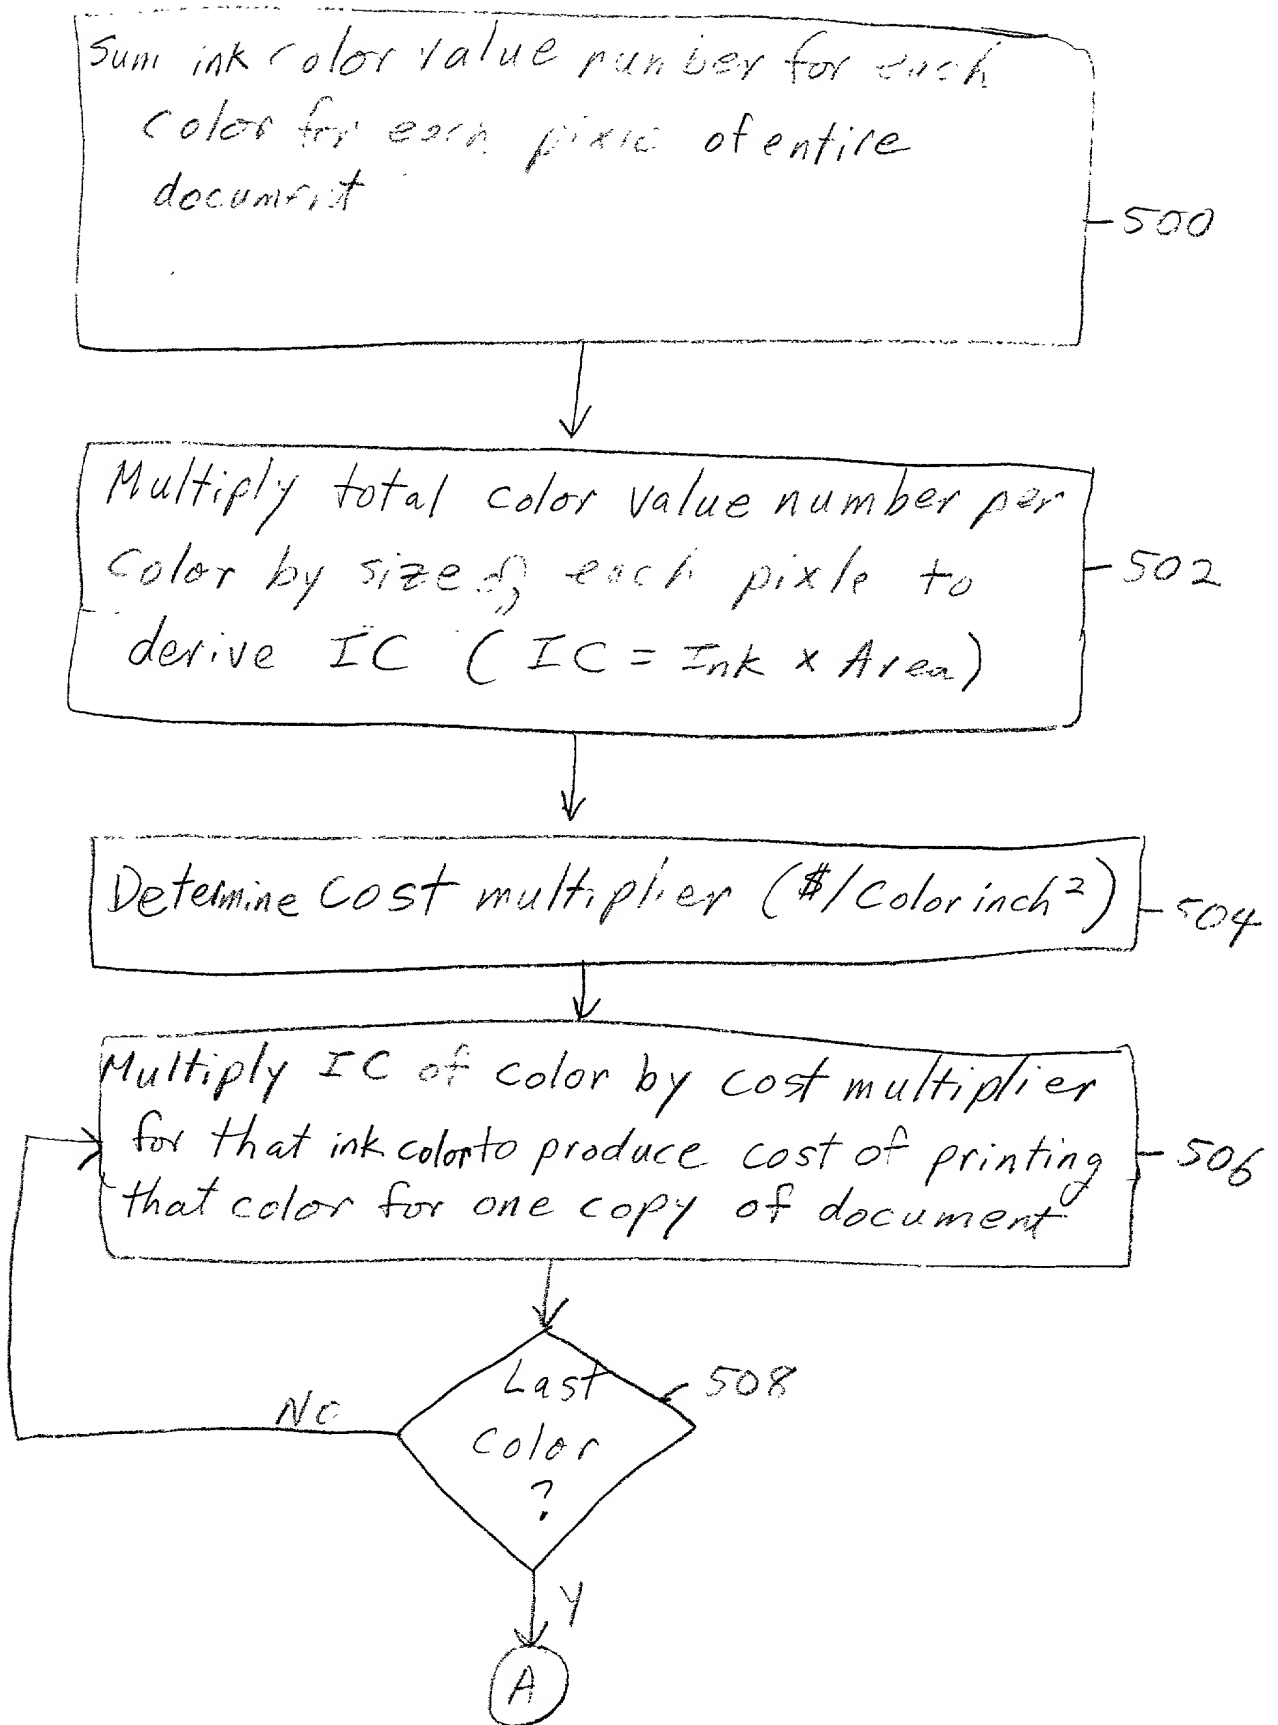 Sum ink color value number for each
color for each pixle of entire
document
500
Multiply total color value number per
color by size of each pixle to
derive IC ( IC = Ink x Area)
502
Determine cost multiplier ($/Color inch²)
504
Multiply IC of color by cost multiplier
for that ink color to produce cost of printing
that color for one copy of document
506
Last
color
?
508
No
Y
A